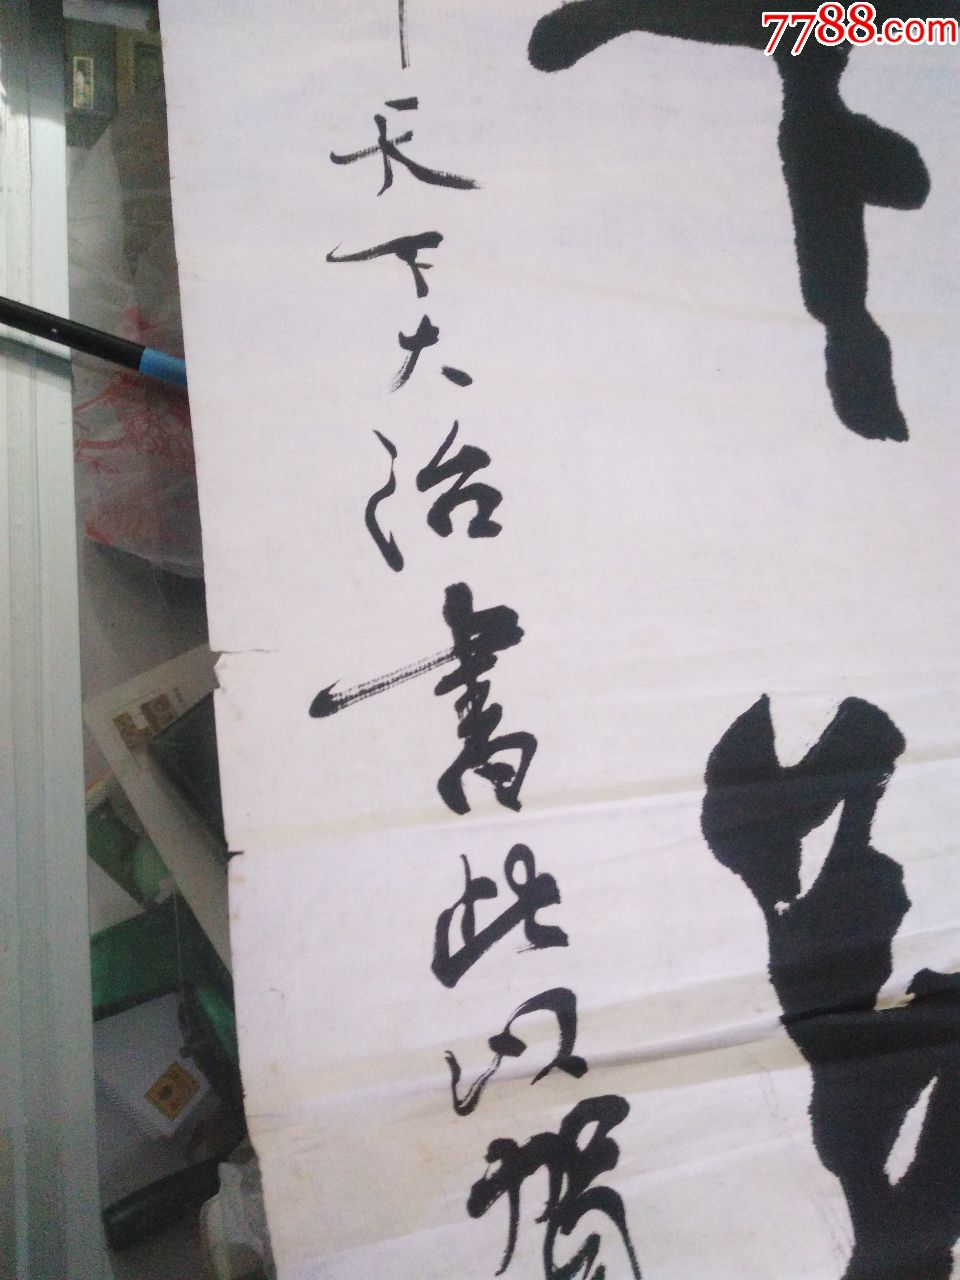 7788.com
天下大治書此以
下